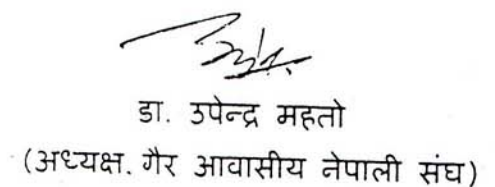 डा. उपेन्द्र महतो
(अध्यक्ष. गैर आवासीय नेपाली संघ)